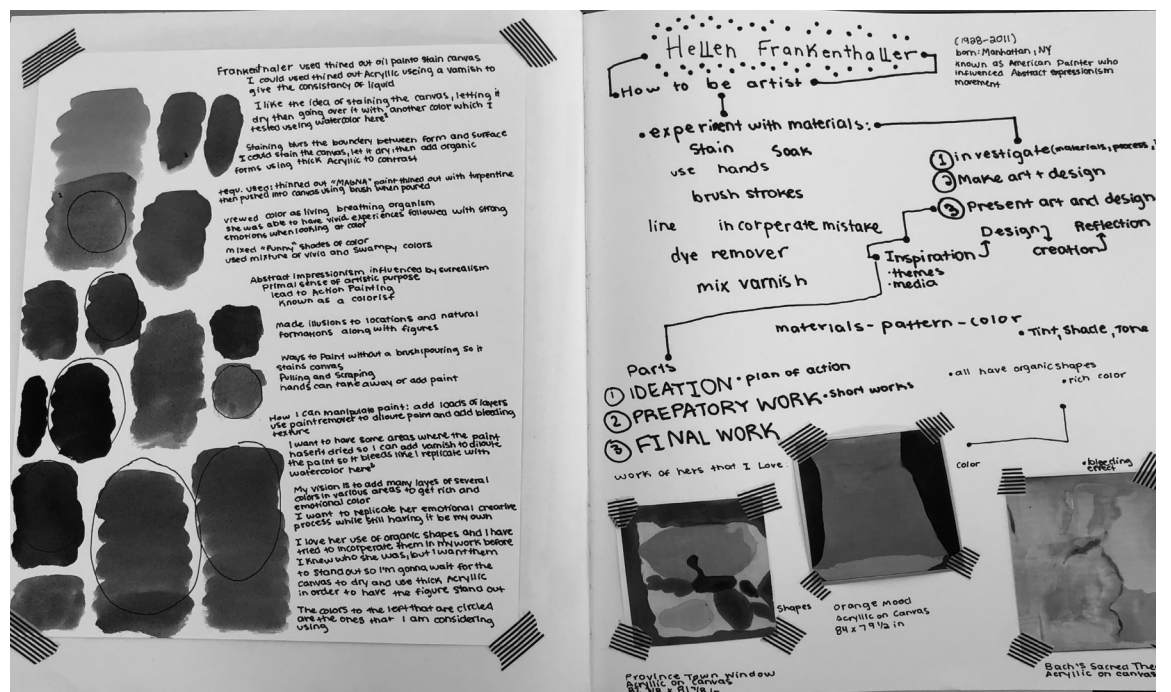 Frankenthaler used thined out oil painto stain canvas
I could used thinned out Acryllic useing a varnish to
give the consistancy of liquid
I like the idea of staining the canvas, letting it
dry then going over it with another color which I
tested useing watercolor here
Staining blurs the boundery between form and surface
I could stain the canvas, let it dry, then add organic
forms using thick Acryllic to contrast
tequ. used: thinned out "MAGNA" paint thined out with turpentine
then pushed into canvas using brush when poured
viewed color as living breathing organism
she was able to have vivid experiences followed with strong
emotions when looking at color
mixed "funny" shades of color
used mixture of vivid and swampy colors
Abstract Impressionism influenced by surrealism
Primal sense of artistic purpose
lead to Action Painting
Known as a colorist
made illusions to locations and natural
formations along with figures
Ways to Paint without a brush: pouring so it
stains canvas
Pulling and Scraping
hands can take away or add paint
How I can manipulate paint: add loads of layers
use paint remover to diloute paint and add bleeding
texture
I want to have some areas where the paint
hasen't dried so I can add varnish to diloute
the paint so it bleeds like I replicate with
watercolor here
My vision is to add many layes of several
colors in various areas to get rich and
emotional color
I want to replicate her emotional creative
process while still having it be my own
I love her use of organic shapes and I have
tried to incorperate them in my work before
I knew who she was, but I want them
to stand out so I'm gonna wait for the
canvas to dry and use thick Acryllic
in order to have the figure stand out
The colors to the left that are circled
are the ones that I am considering
using
Hellen Frankenthaller
(1928-2011)
born: Manhattan, NY
known as American Painter who
influenced Abstract expressionism
movement
How to be artist
experient with materials:
Stain Soak
use hands
brush strokes
line incorperate mistake
dye remover
mix varnish
① investigate (materials, process,
② Make art + design
③ Present art and design
Design Reflection
Inspiration creation
• themes
• media
materials - pattern - color
• Tint, Shade, Tone
Parts
① IDEATION • plan of action
② PREPATORY WORK • short works
③ FINAL WORK
• all have organic shapes
• rich color
work of hers that I Love:
color
• bleeding
effect
Shapes
Orange Mood
Acryllic on Canvas
84 x 79 1/2 in
Province Town Window
Acryllic on Canvas
Bach's Sacred The
Acryllic on canvas